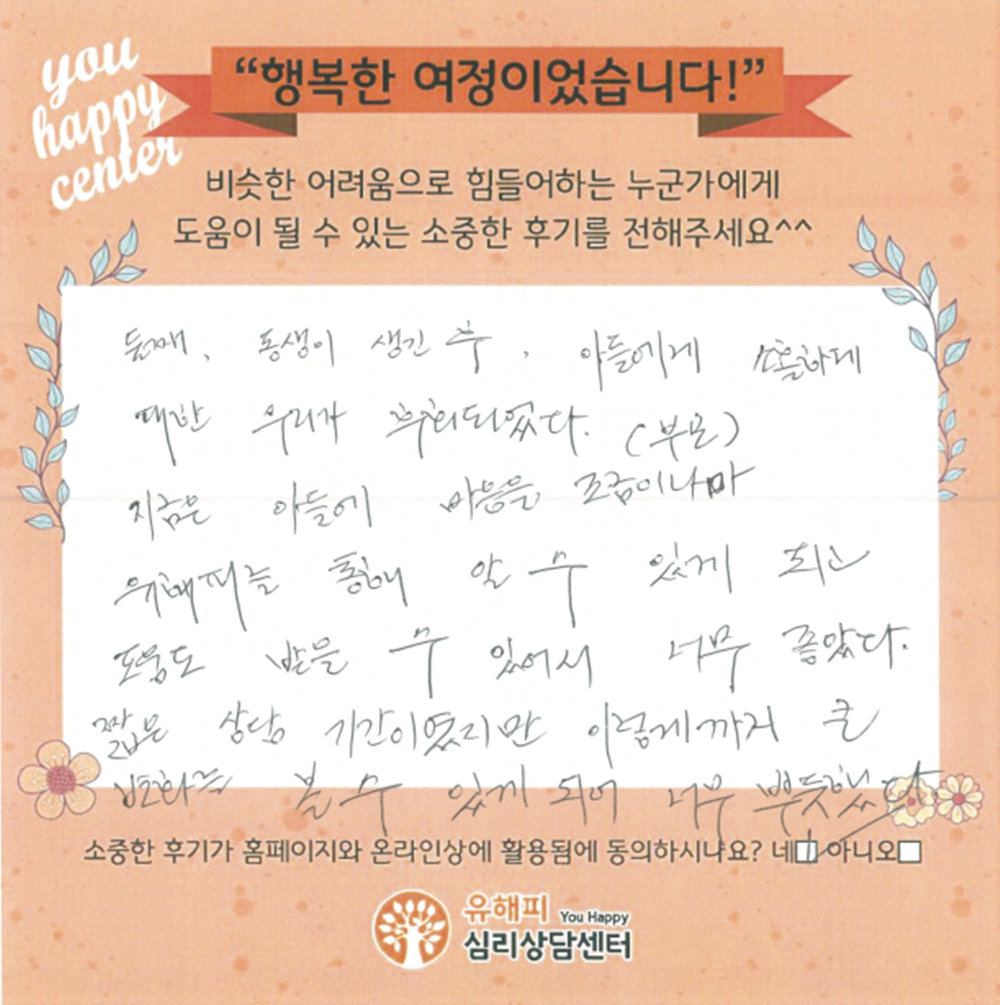 you
happy
center
“행복한 여정이었습니다!”
비슷한 어려움으로 힘들어하는 누군가에게
도움이 될 수 있는 소중한 후기를 전해주세요^^
둘째, 동생이 생긴 후, 아들에게 소홀하게
대한 우리가 후회되었다. (부모)
지금은 아들에 마음을 조금이나마
유해피를 통해 알 수 있게 되고
도움도 받을 수 있어서 너무 좋았다.
짧은 상담 기간이였지만 이렇게까지 큰
변화를 볼 수 있게 되어 너무 뿌듯했다
소중한 후기가 홈페이지와 온라인상에 활용됨에 동의하시나요? 네 아니오
유해피 You Happy
심리상담센터